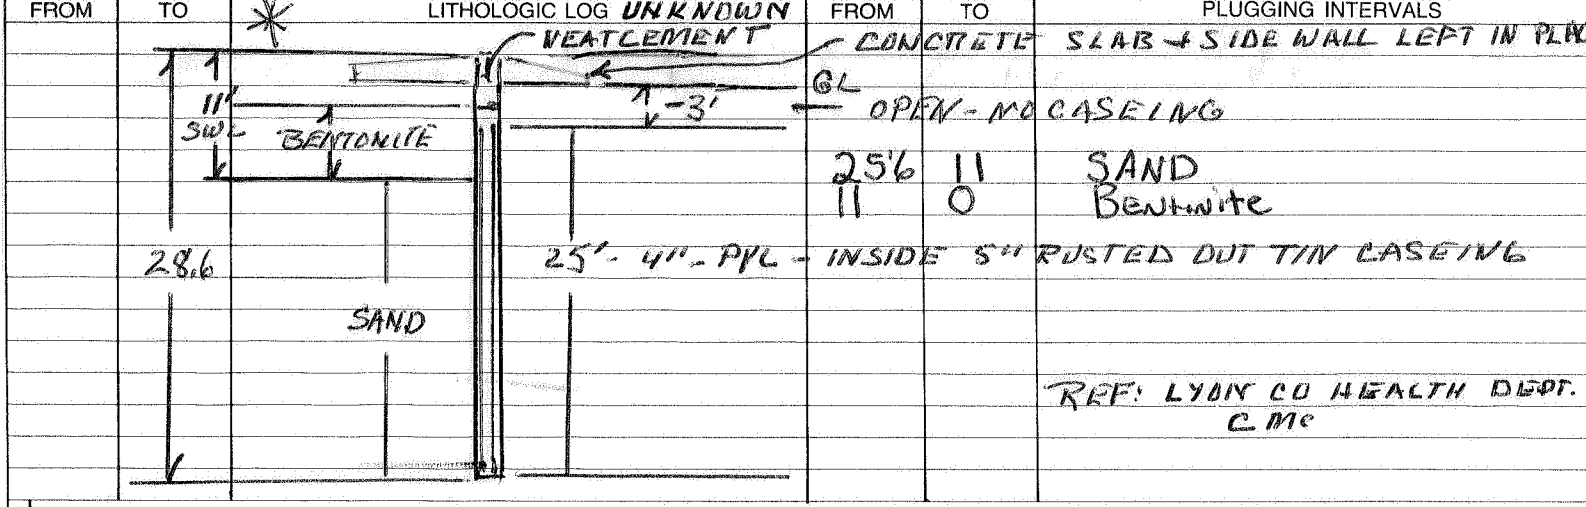 FROM TO * LITHOLOGIC LOG UNKNOWN FROM TO PLUGGING INTERVALS
NEAT CEMENT CONCRETE SLAB + SIDE WALL LEFT IN
GL
11' -3' OPEN - NO CASEING
SWL BENTONITE
25'6 11 SAND
11 0 Bentonite
28.6 25'- 4"- PVC - INSIDE 5" RUSTED OUT TIN CASEING
SAND
REF: LYON CO HEALTH DEPT.
C Mc